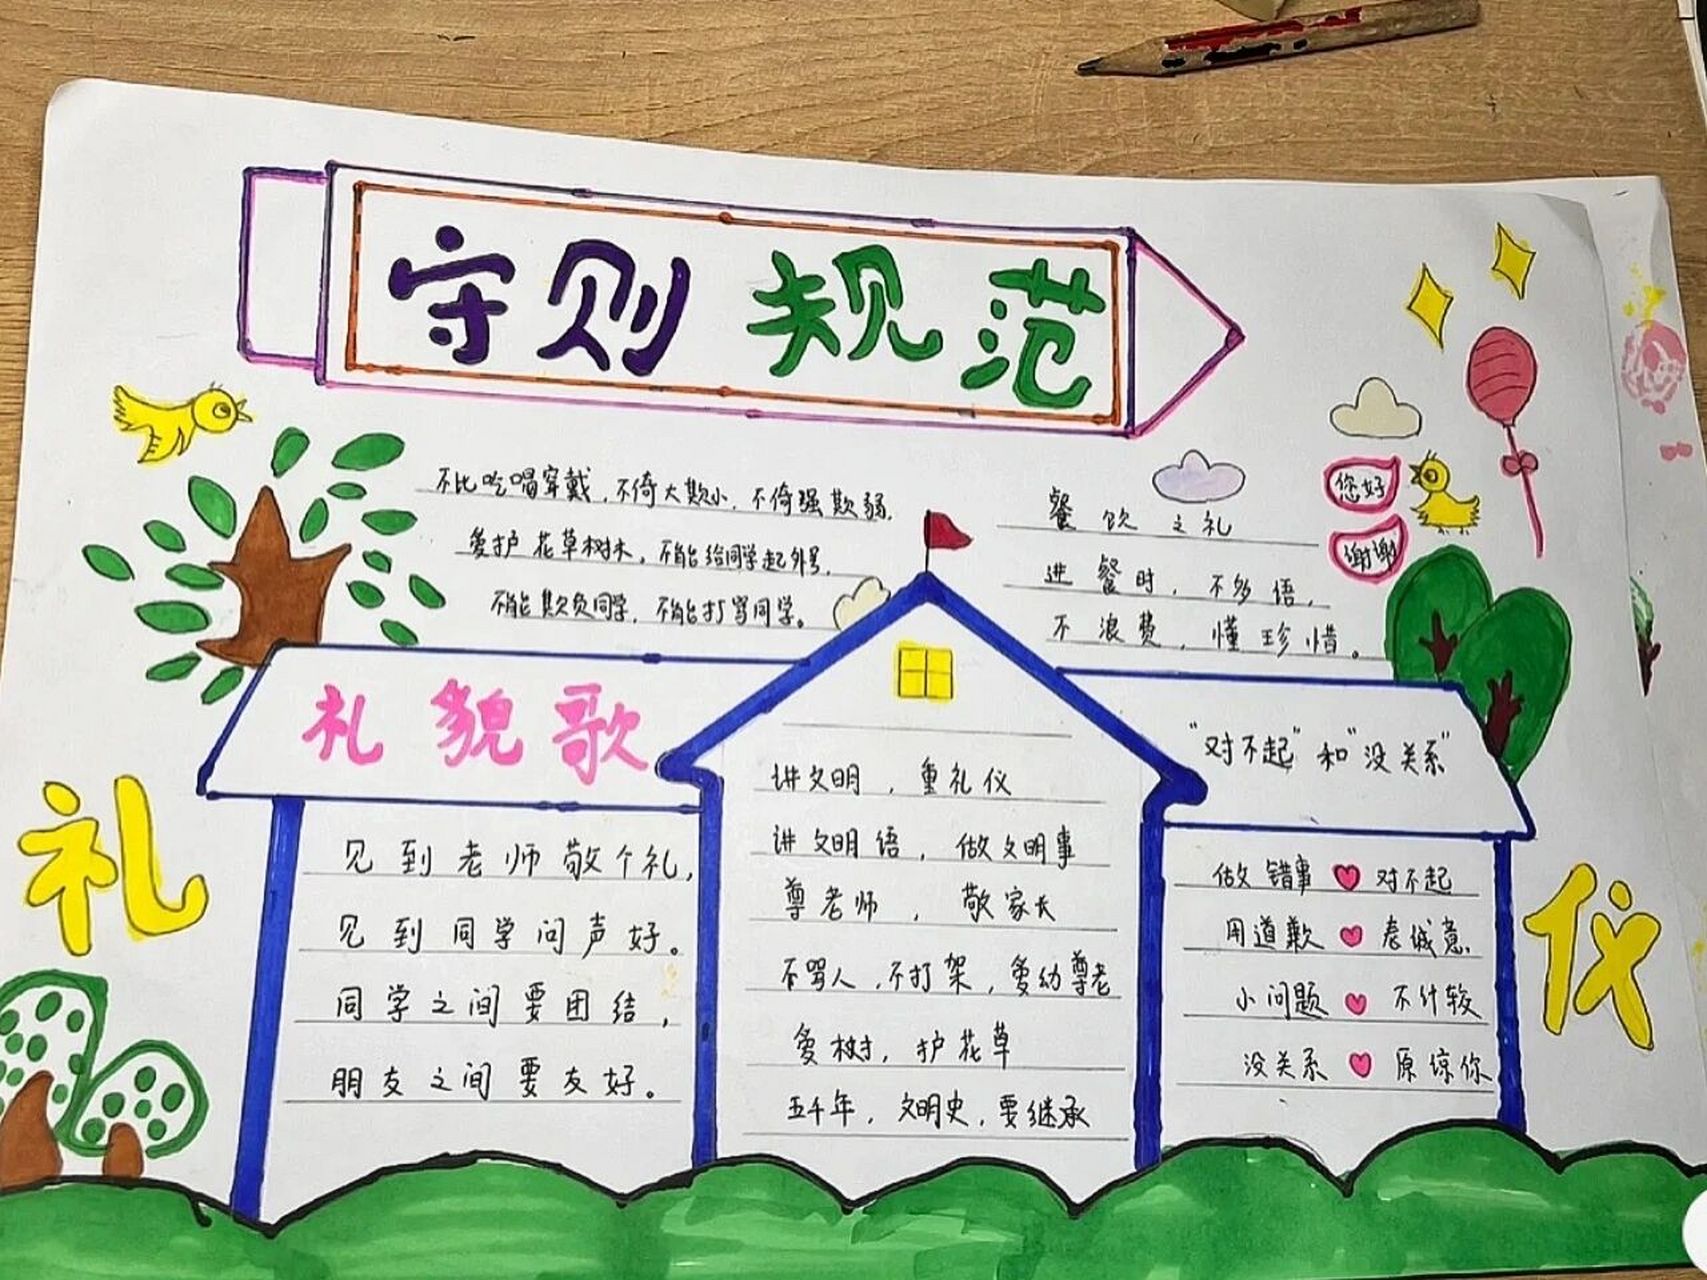 守则 规范
不比吃喝穿戴,不倚大欺小,不倚强欺弱.
爱护花草树木,不能给同学起外号.
不能欺负同学,不能打骂同学。
餐饮之礼
进餐时,不多语,
不浪费,懂珍惜。
您好
谢谢
礼貌歌
见到老师敬个礼,
见到同学问声好。
同学之间要团结,
朋友之间要友好。
讲文明,重礼仪
讲文明语,做文明事
尊老师,敬家长
不骂人,不打架,爱幼尊老
爱树,护花草
五千年,文明史,要继承
"对不起"和"没关系"
做错事 ♥ 对不起
用道歉 ♥ 表诚意
小问题 ♥ 不计较
没关系 ♥ 原谅你
礼
仪